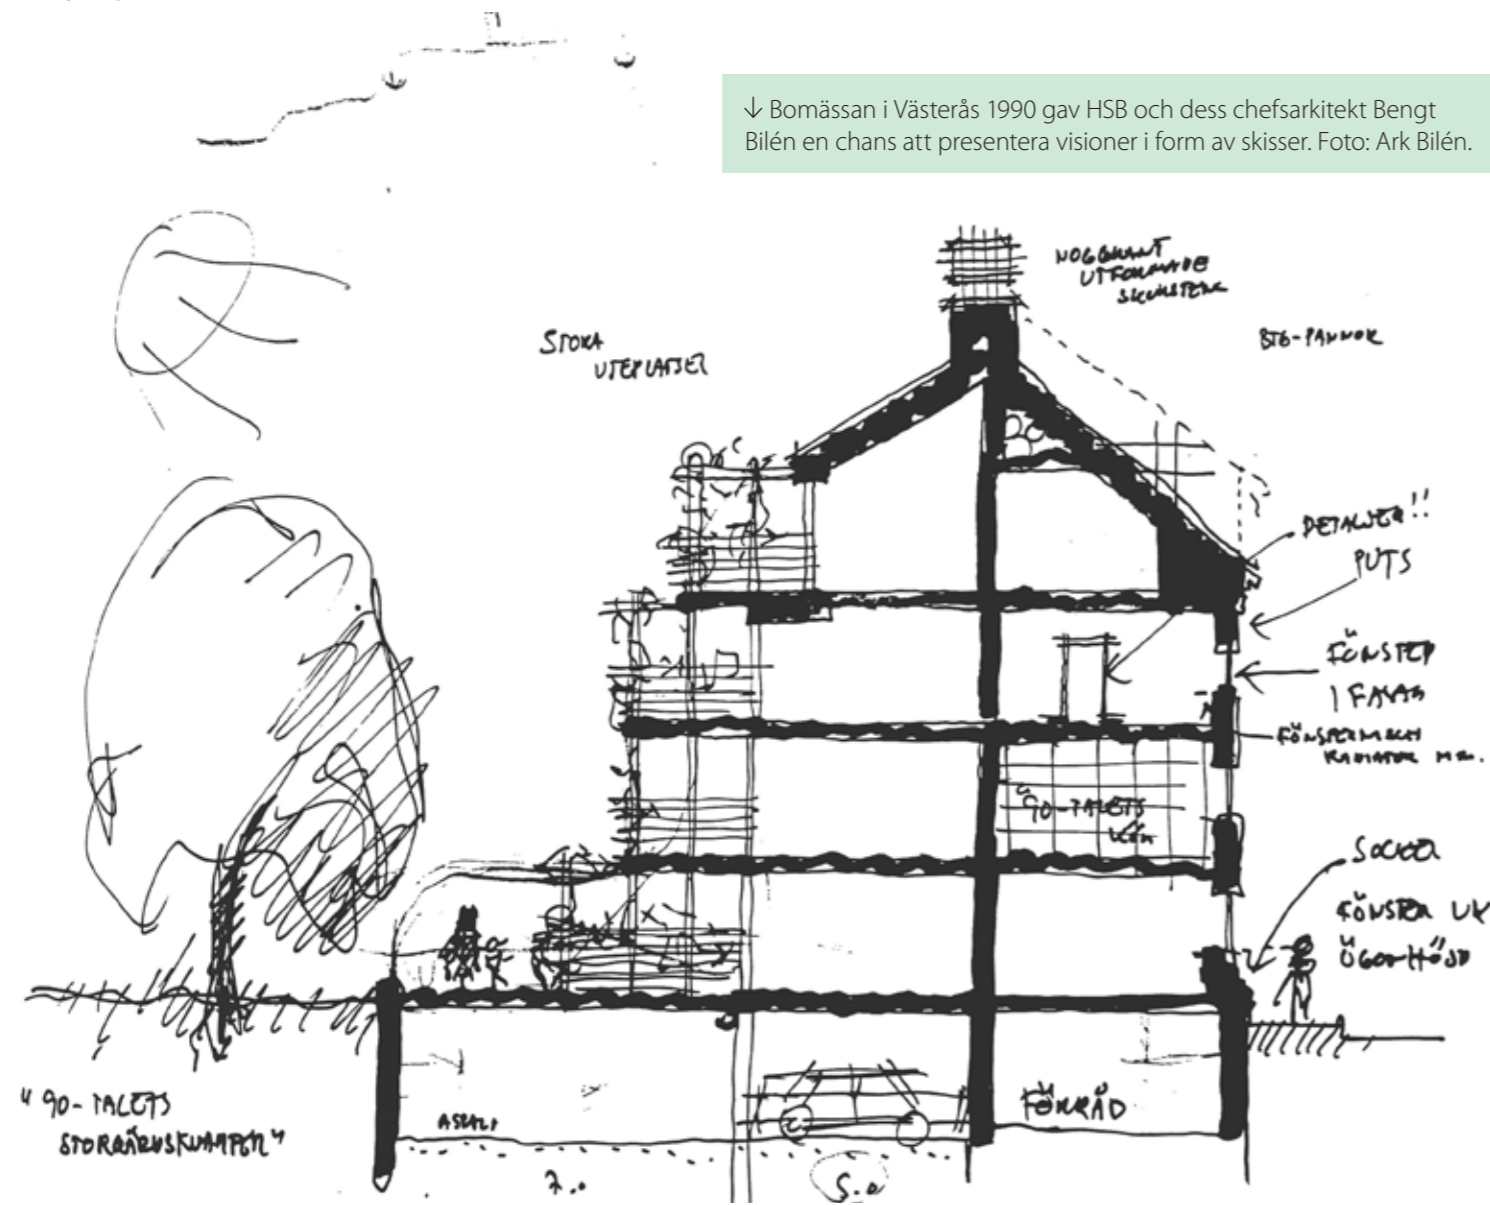 ↓ Bomässan i Västerås 1990 gav HSB och dess chefsarkitekt Bengt
Bilén en chans att presentera visioner i form av skisser. Foto: Ark Bilén.
NOGGRANT
UTFORMADE
SKORSTENAR
STORA
UTEPLATSER
BTG-PANNOR
DETALJER!!
PUTS
FÖNSTER
I FASAD
FÖNSTERN OCH
RADIATOR MM.
"90-TALETS
KÖK
SOCKEL
FÖNSTER UK
ÖGONHÖJD
"90-TALETS
STORGÅRDSKVARTER"
ASFALT
FÖRRÅD
7.0
5.0